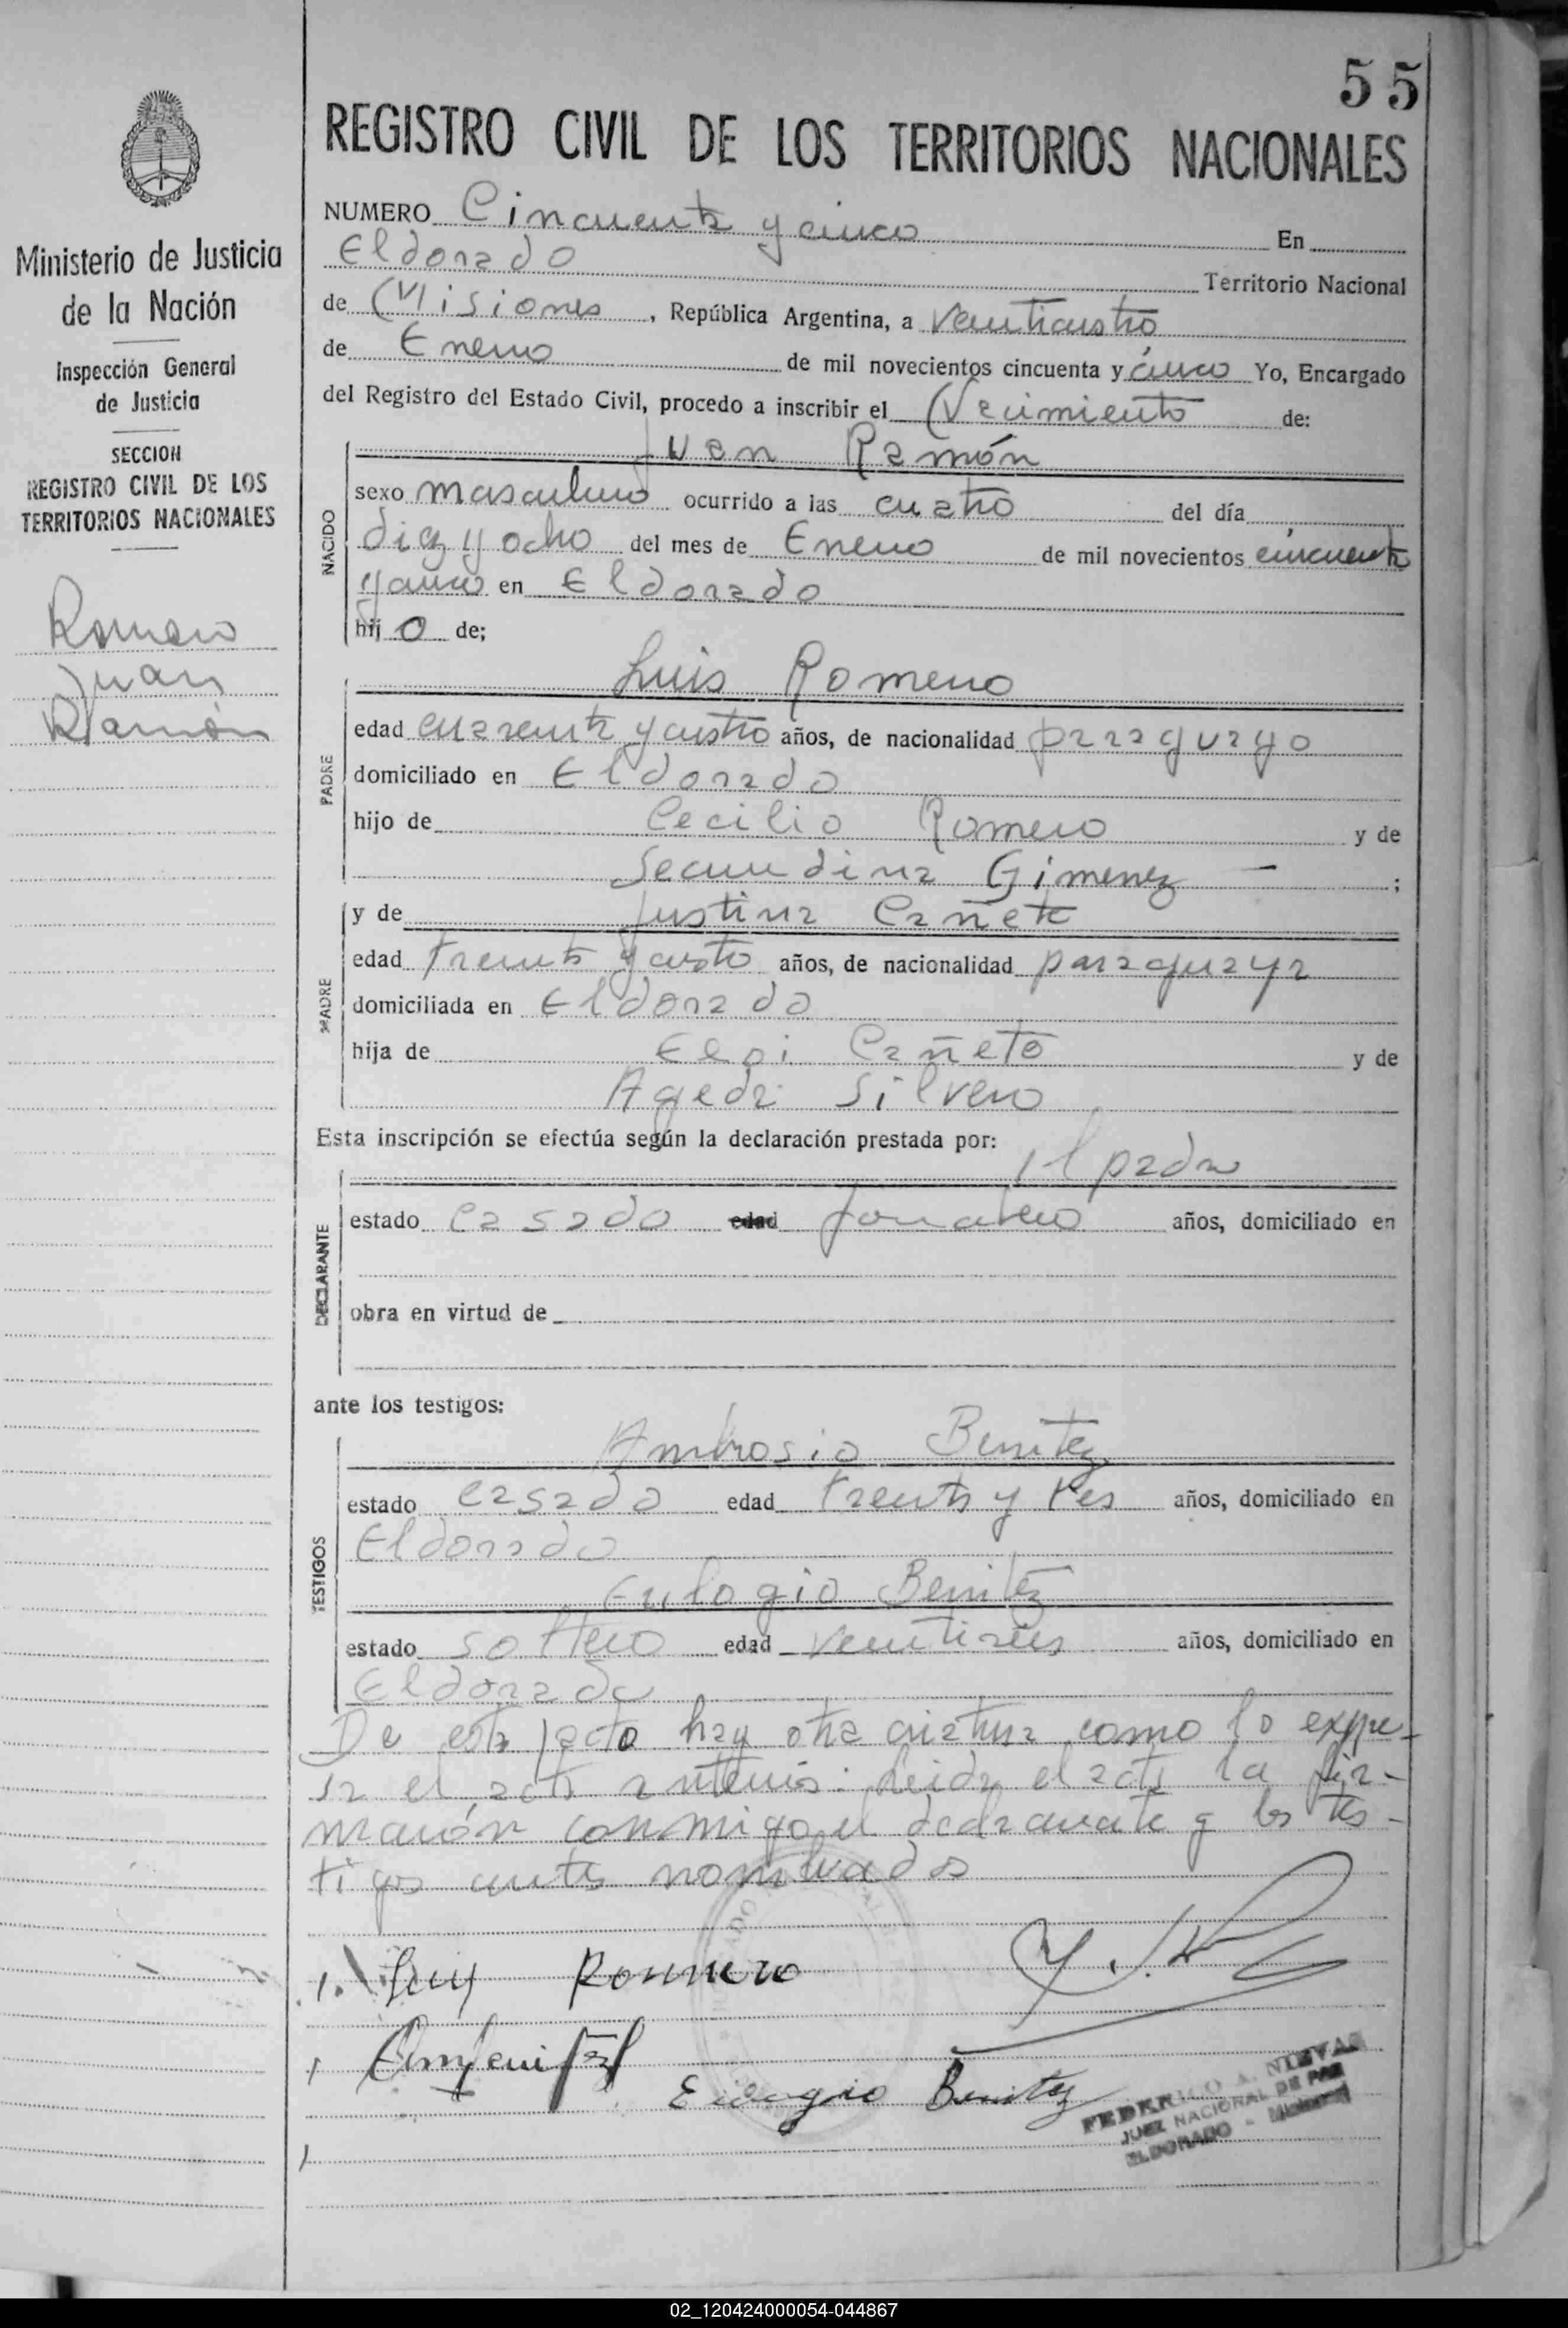 55
REGISTRO CIVIL DE LOS TERRITORIOS NACIONALES
Ministerio de Justicia
de la Nación
Inspección General
de Justicia
SECCION
REGISTRO CIVIL DE LOS
TERRITORIOS NACIONALES
Romero
Juan
Ramón
NUMERO Cincuenta y cinco En
Eldorado Territorio Nacional
de Misiones, República Argentina, a veinticuatro
de Enero de mil novecientos cincuenta y cinco Yo, Encargado
del Registro del Estado Civil, procedo a inscribir el Nacimiento de:
NACIDO
Juan Ramón
sexo masculino ocurrido a las cuatro del día
diez y ocho del mes de Enero de mil novecientos cincuenta
y cinco en Eldorado
hijo de;
PADRE
Luis Romero
edad cuarenta y cuatro años, de nacionalidad paraguayo
domiciliado en Eldorado
hijo de Cecilio Romero y de
Secundina Gimenez — ;
MADRE
y de Justina Cañete
edad treinta y cuatro años, de nacionalidad paraguaya
domiciliada en Eldorado
hija de Eloi Cañete y de
Ageda Silvero
Esta inscripción se efectúa según la declaración prestada por:
El padre
DECLARANTE
estado casado edad jornalero años, domiciliado en
obra en virtud de
ante los testigos:
TESTIGOS
Ambrosio Benitez
estado casado edad treinta y tres años, domiciliado en
Eldorado
Eulogio Benitez
estado soltero edad años, domiciliado en
Eldorado
De este parto hay otra criatura como lo expre-
sa el acta anterior. Leida el acta la fir-
maron conmigo el declarante y los tes-
tigos antes nombrados
Luis Rommero
Eulogio Benitez
FEDERICO A. NIEVAS
JUEZ NACIONAL DE PAZ
ELDORADO - Misiones
02_120424000054-044867